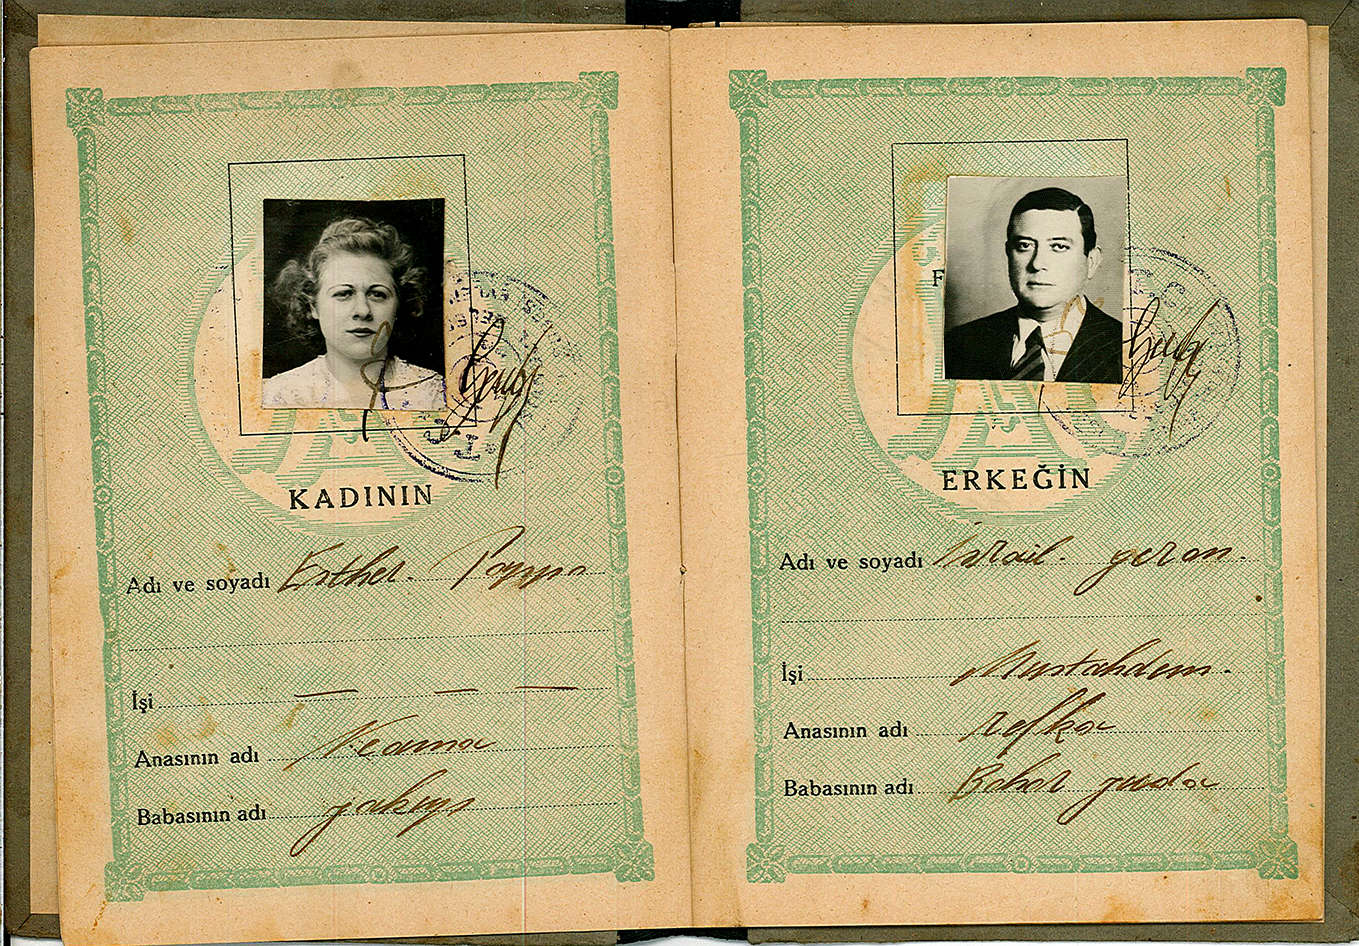 KADININ
Adı ve soyadı Esther. Pappo
İşi — — —
Anasının adı Neama
Babasının adı
ERKEĞİN
Adı ve soyadı İsrail. geron.
İşi Mustahdem.
Anasının adı refka
Babasının adı Bohor juda
T.C.